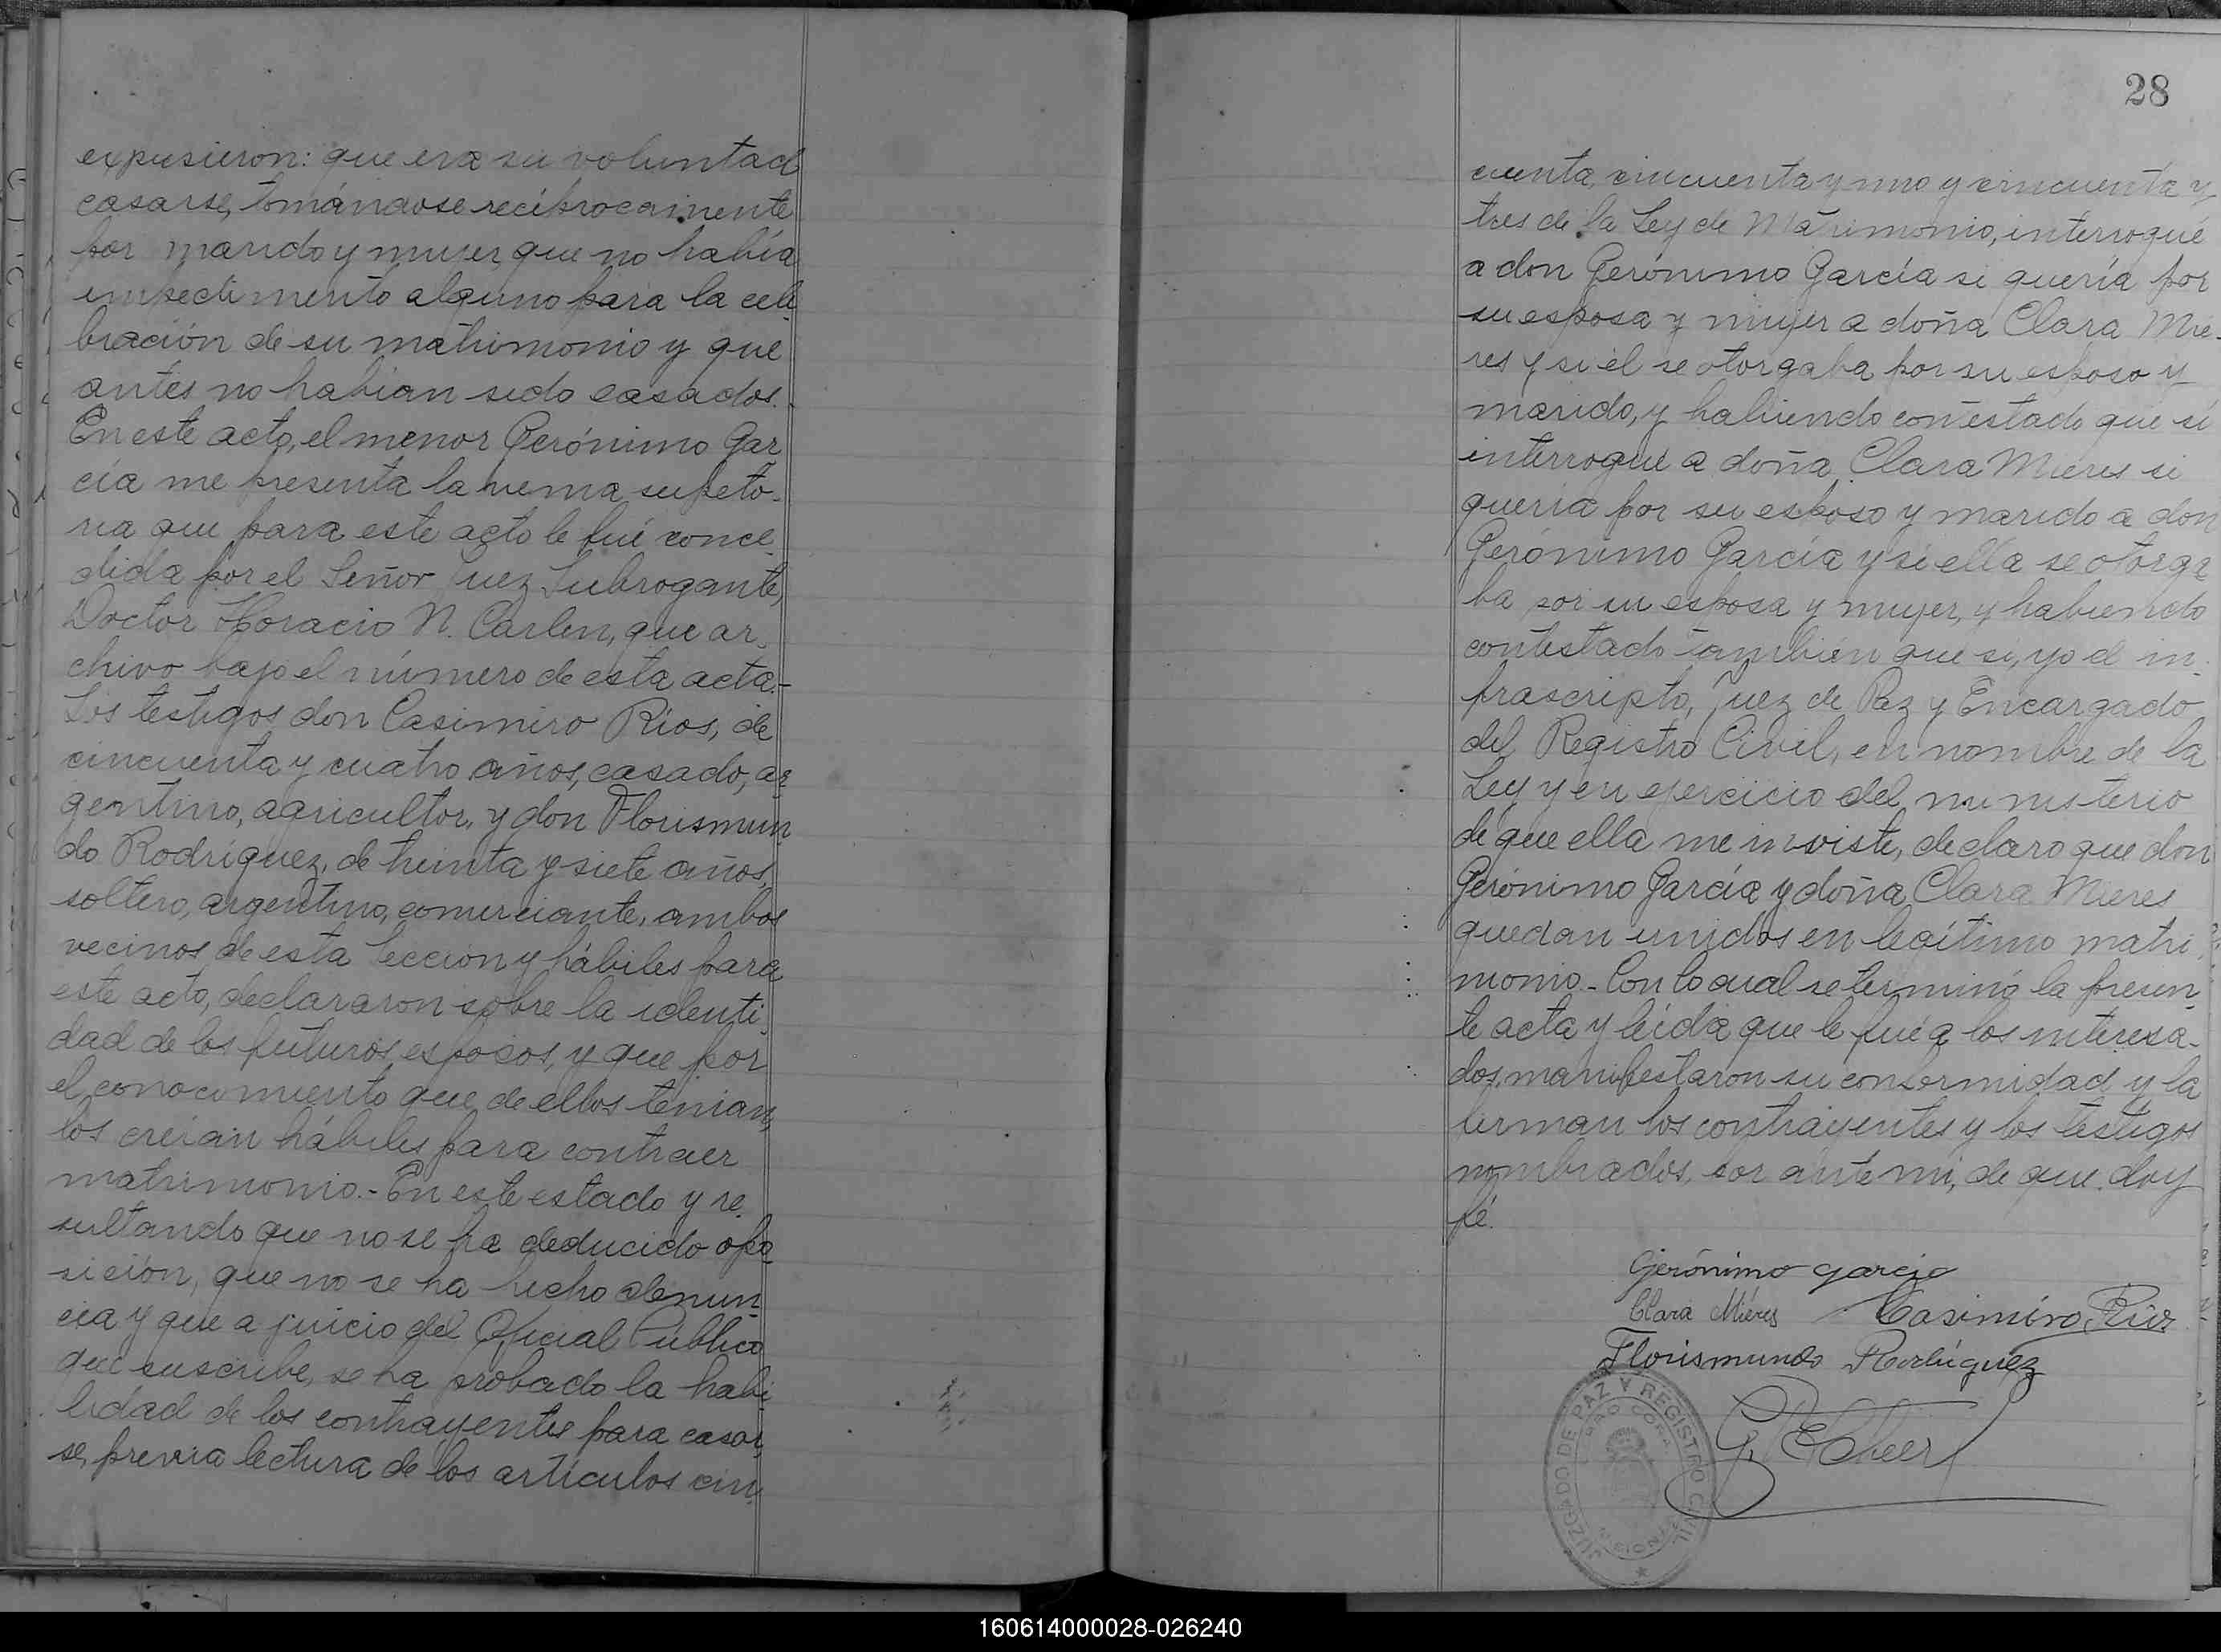 expusieron: que era su voluntad
casarse, tomándose recíprocamente
por marido y mujer, que no había
impedimento alguno para la cele
bración de su matrimonio y que
antes no habían sido casados.
En este acto, el menor Gerónimo Gar
cía me presenta la venia supleto-
ria que para este acto le fué conce
dida por el Señor Juez Subrogante,
Doctor Horacio N. Carlen, que ar
chivo bajo el número de esta acta.-
Los testigos don Casimiro Ríos, de
cincuenta y cuatro años, casado, ar
gentino, agricultor, y don Florismun
do Rodríguez, de treinta y siete años,
soltero, argentino, comerciante, ambos
vecinos de esta Sección y hábiles para
este acto, declararon sobre la identi
dad de los futuros esposos, y que por
el conocimiento que de ellos tenían,
los creían hábiles para contraer
matrimonio.- En este estado y re
sultando que no se ha deducido opo
sición, que no se ha hecho denun
cia y que a juicio del Oficial Público
que suscribe, se ha probado la habi
lidad de los contrayentes para casar
se, previa lectura de los artículos cin
28
cuenta, cincuenta y uno y cincuenta y
tres de la Ley de Matrimonio, interrogué
a don Gerónimo García si quería por
su esposa y mujer a doña Clara Mie-
res y si él se otorgaba por su esposo y
marido, y habiendo contestado que sí
interrogué a doña Clara Mieres si
quería por su esposo y marido a don
Gerónimo García y si ella se otorga
ba por su esposa y mujer, y habiendo
contestado también que si, yo el in
frascripto, Juez de Paz y Encargado
del Registro Civil, en nombre de la
Ley y en ejercicio del ministerio
de que ella me inviste, declaro que don
Gerónimo García y doña Clara Mieres
quedan unidos en legítimo matri
monio.- Con lo cual se terminó la presen
te acta y leída que le fué a los interesa-
dos, manifestaron su conformidad y la
firman los contrayentes y los testigos
nombrados, por ante mi, de que doy
fé.
Gerónimo Garcia
Clara Miéres Casimiro Rios
Florismundo Rodríguez
JUZGADO DE PAZ Y REGISTRO CIVIL
CERRO CORA
MISIONES
160614000028-026240